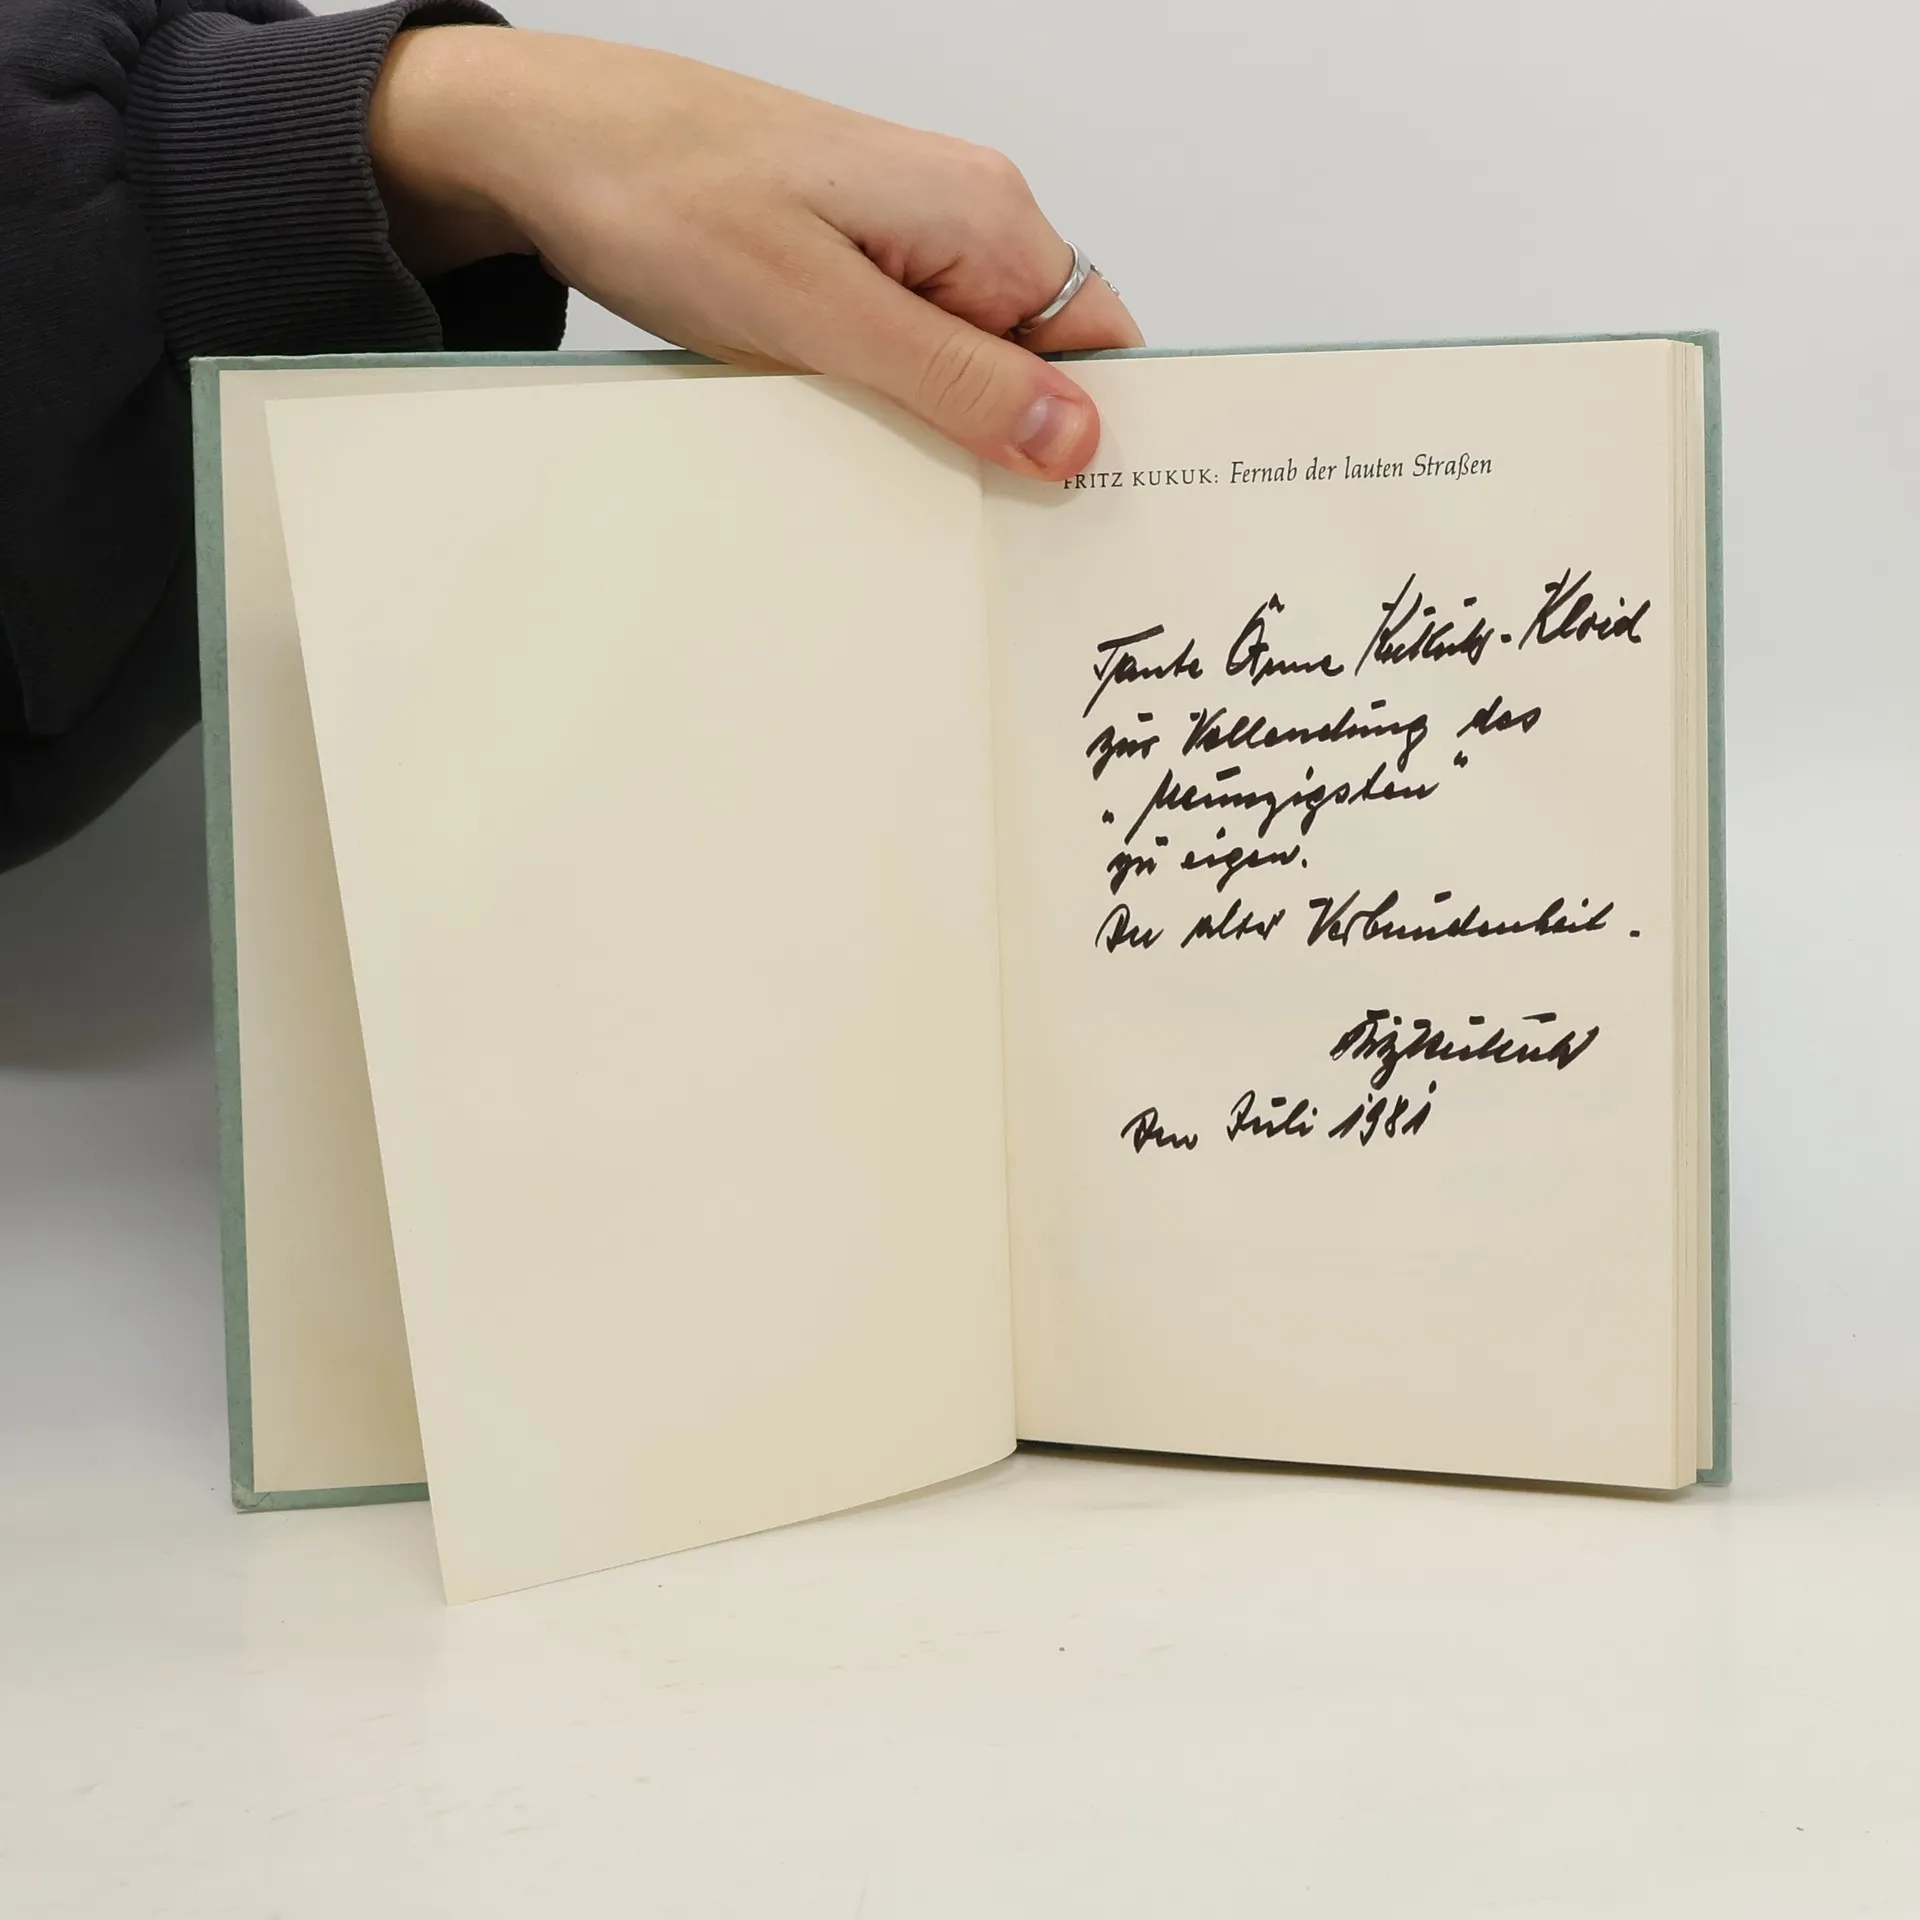 FRITZ KUKUK: Fernab der lauten Straßen
Tante Änne Kukuk-
zur Vollendung des
"Neunzigsten"
zu eigen.
In alter Verbundenheit.
Fritz Kukuk
Im Juli 1981